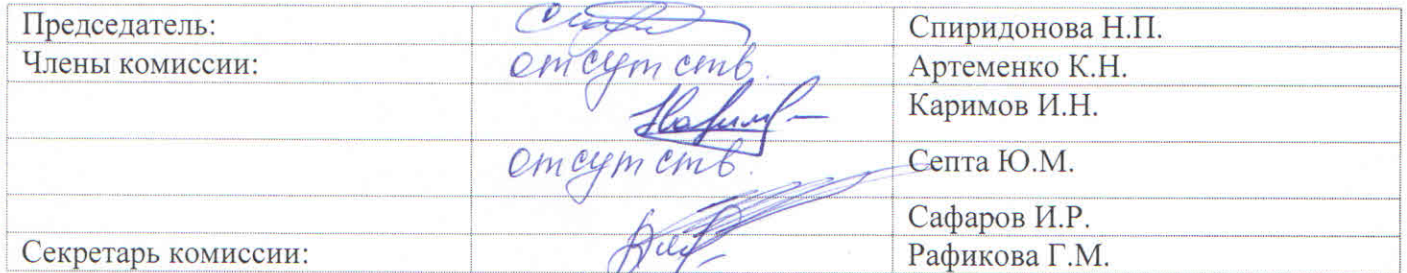 Председатель: Спиридонова Н.П.
Члены комиссии: отсутств. Артеменко К.Н.
Каримов И.Н.
отсутств. Септа Ю.М.
Сафаров И.Р.
Секретарь комиссии: Рафикова Г.М.